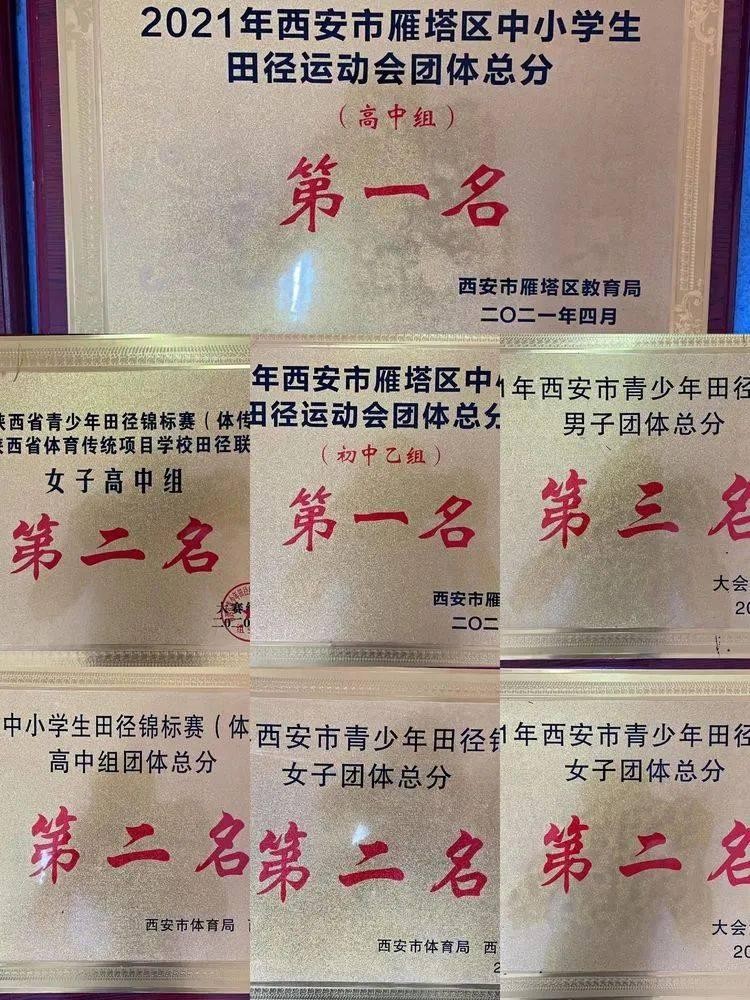 2021年西安市雁塔区中小学生
田径运动会团体总分
（高中组）
第一名
西安市雁塔区教育局
二〇二一年四月
陕西省青少年田径锦标赛（体传
陕西省体育传统项目学校田径联
女子高中组
第二名
大赛
二〇二〇
年西安市雁塔区中小
田径运动会团体总分
（初中乙组）
第一名
西安市雁
二〇二
1年西安市青少年田径
男子团体总分
第三名
大会
20
中小学生田径锦标赛（体
高中组团体总分
第二名
西安市体育局
西安市青少年田径锦
女子团体总分
第二名
西安市体育局 西
2
1年西安市青少年田径
女子团体总分
第二名
大会
20